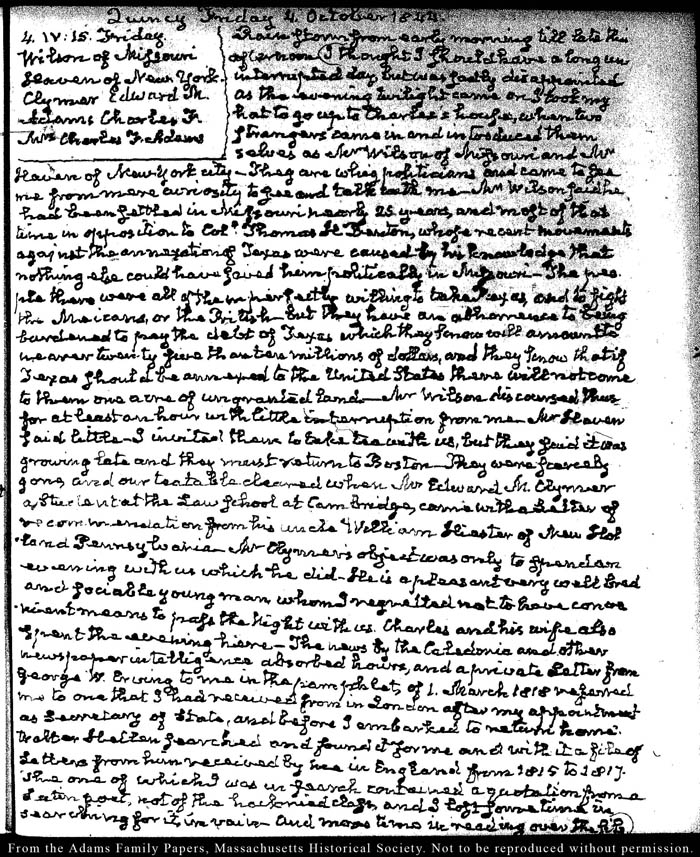 Quincy Friday 4. October 1844.
4. IV:15. Friday.
Wilson of Missouri
Heaven of New York.
Clymer Edward M.
Adams Charles F.
Mrs Charles F. Adams
Rain storm from early morning till late this
afternoon I thought I should have a long un
interrupted day, but was sadly disappointed
as the evening twilight came on I took my
hat to go up to Charles's house, when two
strangers came in and introduced them
selves as Mr Wilson of Missouri and Mr
Haven of New-York city — They are whig politicians and came to see
me from mere curiosity to see and talk with me — Mr Wilson said he
had been settled in Missouri nearly 25 years, and most of that
time in opposition to Col. Thomas H. Benton, whose recent movements
against the annexation of Texas were caused by his knowledge that
nothing else could have saved him politically in Missouri — The peo
ple there were all of them perfectly willing to take Texas, and to fight
the Mexicans, or the British — but they have an abhorrence to being
burdened to pay the debt of Texas which they know will amount to
nearer twenty five than ten millions of dollars, and they know that if
Texas should be annexed to the United States there will not come
to them one acre of ungranted land — Mr Wilson discoursed thus
for at least an hour with little interruption from me — Mr Haven
said little — I invited them to take tea with us, but they said it was
growing late and they must return to Boston — They were scarcely
gone, and our tea table cleared when Mr Edward M. Clymer
a Student at the Law School at Cambridge, came with a Letter of
recommendation from his uncle William Hiester of New Hol
land Pennsylvania — Mr Clymer's object was only to spend an
evening with us which he did — He is a pleasant very well bred
and sociable young man whom I regretted not to have conve
nient means to pass the Night with us. Charles and his wife also
spent the evening here — The news by the Caledonia and other
newspaper intelligence absorbed hours, and a private Letter from
George W. Erving to me in the pamphlet, of 1. March 1818 referred
me to one that I had received from in London after my appointment
as Secretary of State, and before I embarked to return home.
Walter Hellen searched and found it for me and with it a file of
Letters from him received by me in England from 1815 to 1817.
The one of which I was in search contained a quotation from a
Latin poet, not of the hackneied class, and I lost some time in
searching for it in vain — and more time in reading over the
From the Adams Family Papers, Massachusetts Historical Society. Not to be reproduced without permission.